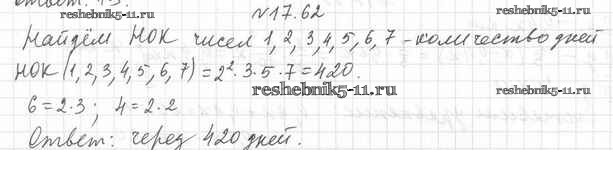 Ответ: 15.
reshebnik5-11.ru
№17.62
reshebnik5-11.ru
Найдём НОК чисел 1, 2, 3, 4, 5, 6, 7 - количество дней
НОК (1, 2, 3, 4, 5, 6, 7) = 2² · 3 · 5 · 7 = 420.
6 = 2 · 3 ; 4 = 2 · 2
reshebnik5-11.ru
Ответ: через 420 дней.